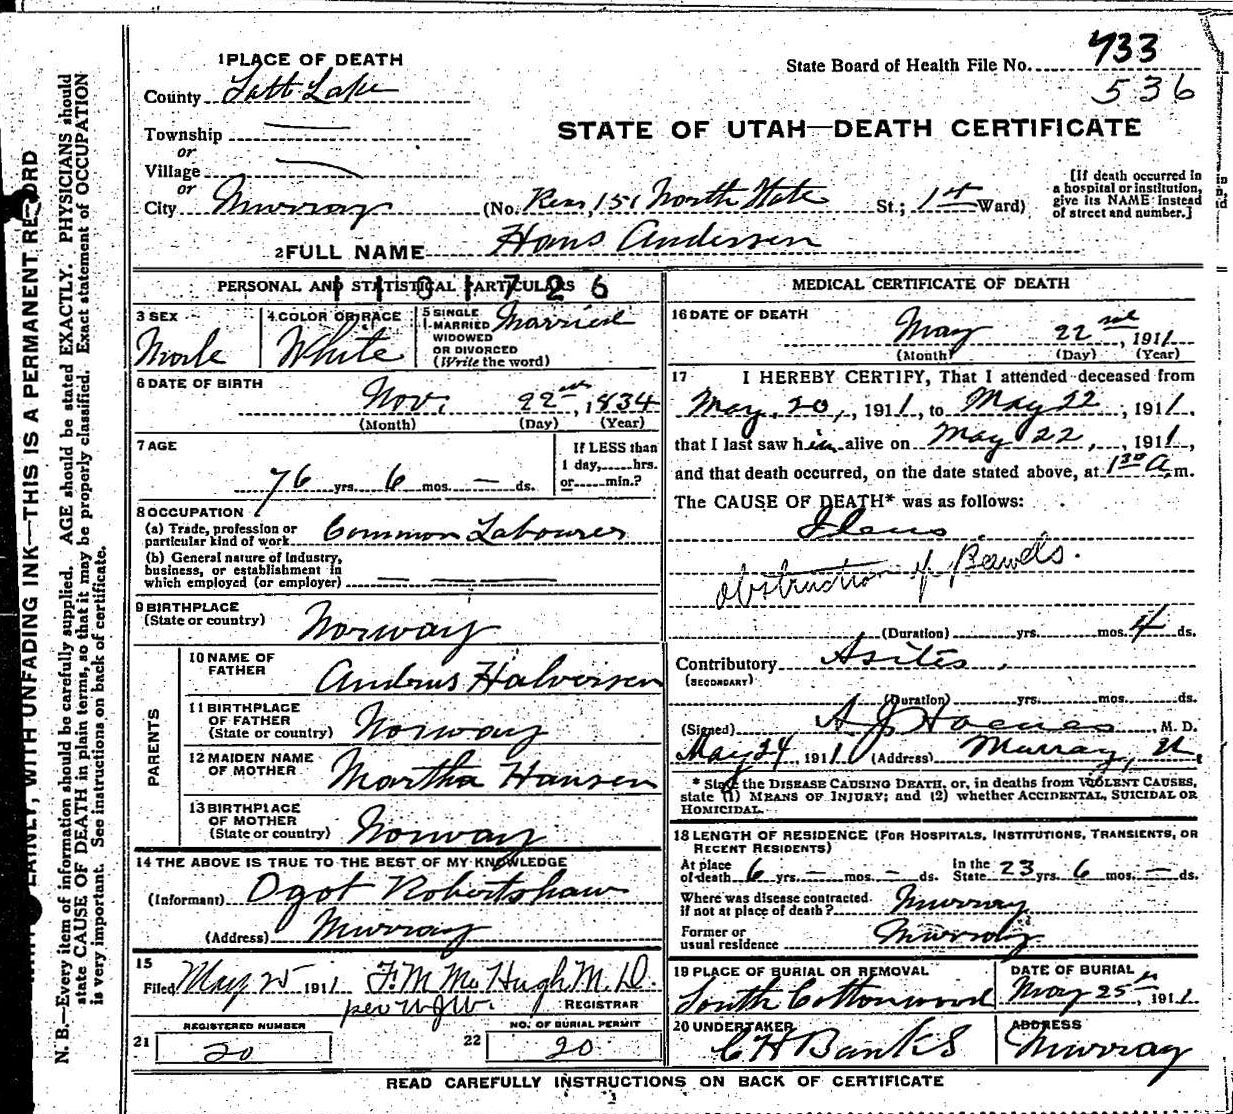 1 PLACE OF DEATH
State Board of Health File No. 733
536
County Salt Lake
STATE OF UTAH—DEATH CERTIFICATE
Township
or
Village
or
City Murray (No. Rear 151 North State St.; 1st Ward)
[If death occurred in
a hospital or institution,
give its NAME instead
of street and number.]
2 FULL NAME Hans Andersen
PERSONAL AND STATISTICAL PARTICULARS
3 SEX
Male
4 COLOR OR RACE
White
5 SINGLE
MARRIED
WIDOWED
OR DIVORCED
(Write the word)
Married
6 DATE OF BIRTH
Nov. 22 , 1834
(Month) (Day) (Year)
7 AGE
76 yrs. 6 mos. — ds.
If LESS than
1 day,......hrs.
or......min.?
8 OCCUPATION
(a) Trade, profession or
particular kind of work Common Labourer
(b) General nature of industry,
business, or establishment in
which employed (or employer)
9 BIRTHPLACE
(State or country) Norway
PARENTS
10 NAME OF
FATHER Andrus Halversen
11 BIRTHPLACE
OF FATHER
(State or country) Norway
12 MAIDEN NAME
OF MOTHER Martha Hansen
13 BIRTHPLACE
OF MOTHER
(State or country) Norway
14 THE ABOVE IS TRUE TO THE BEST OF MY KNOWLEDGE
(Informant) Robertshaw
(Address) Murray
15
Filed May 25 1911 F. M. McHugh M.D.
per W.J.W. REGISTRAR
REGISTERED NUMBER
21 20
NO. OF BURIAL PERMIT
22 20
MEDICAL CERTIFICATE OF DEATH
16 DATE OF DEATH
May 22nd , 1911
(Month) (Day) (Year)
17 I HEREBY CERTIFY, That I attended deceased from
May 20, , 1911, to May 22 , 1911,
that I last saw him alive on May 22 , 1911,
and that death occurred, on the date stated above, at 1 30 A.m.
The CAUSE OF DEATH* was as follows:
Ileus
obstruction of Bowels.
(Duration) yrs. mos. 4 ds.
Contributory Asites
(SECONDARY)
(Duration) yrs. mos. ds.
(Signed) M. D.
May 24 1911 (Address) Murray, U.
* State the DISEASE CAUSING DEATH, or, in deaths from VIOLENT CAUSES,
state (1) MEANS OF INJURY; and (2) whether ACCIDENTAL, SUICIDAL OR
HOMICIDAL.
18 LENGTH OF RESIDENCE (FOR HOSPITALS, INSTITUTIONS, TRANSIENTS, OR
RECENT RESIDENTS)
At place
of death 6 yrs. — mos. — ds.
In the
State 23 yrs. 6 mos. — ds.
Where was disease contracted
if not at place of death? Murray
Former or
usual residence Murray
19 PLACE OF BURIAL OR REMOVAL
South Cottonwood
DATE OF BURIAL
May 25th, 1911
20 UNDERTAKER
C H Banks
ADDRESS
Murray
READ CAREFULLY INSTRUCTIONS ON BACK OF CERTIFICATE
PLAINLY, WITH UNFADING INK—THIS IS A PERMANENT RECORD
N. B.—Every item of information should be carefully supplied. AGE should be stated EXACTLY. PHYSICIANS should
state CAUSE OF DEATH in plain terms, so that it may be properly classified. Exact statement of OCCUPATION
is very important. See instructions on back of certificate.